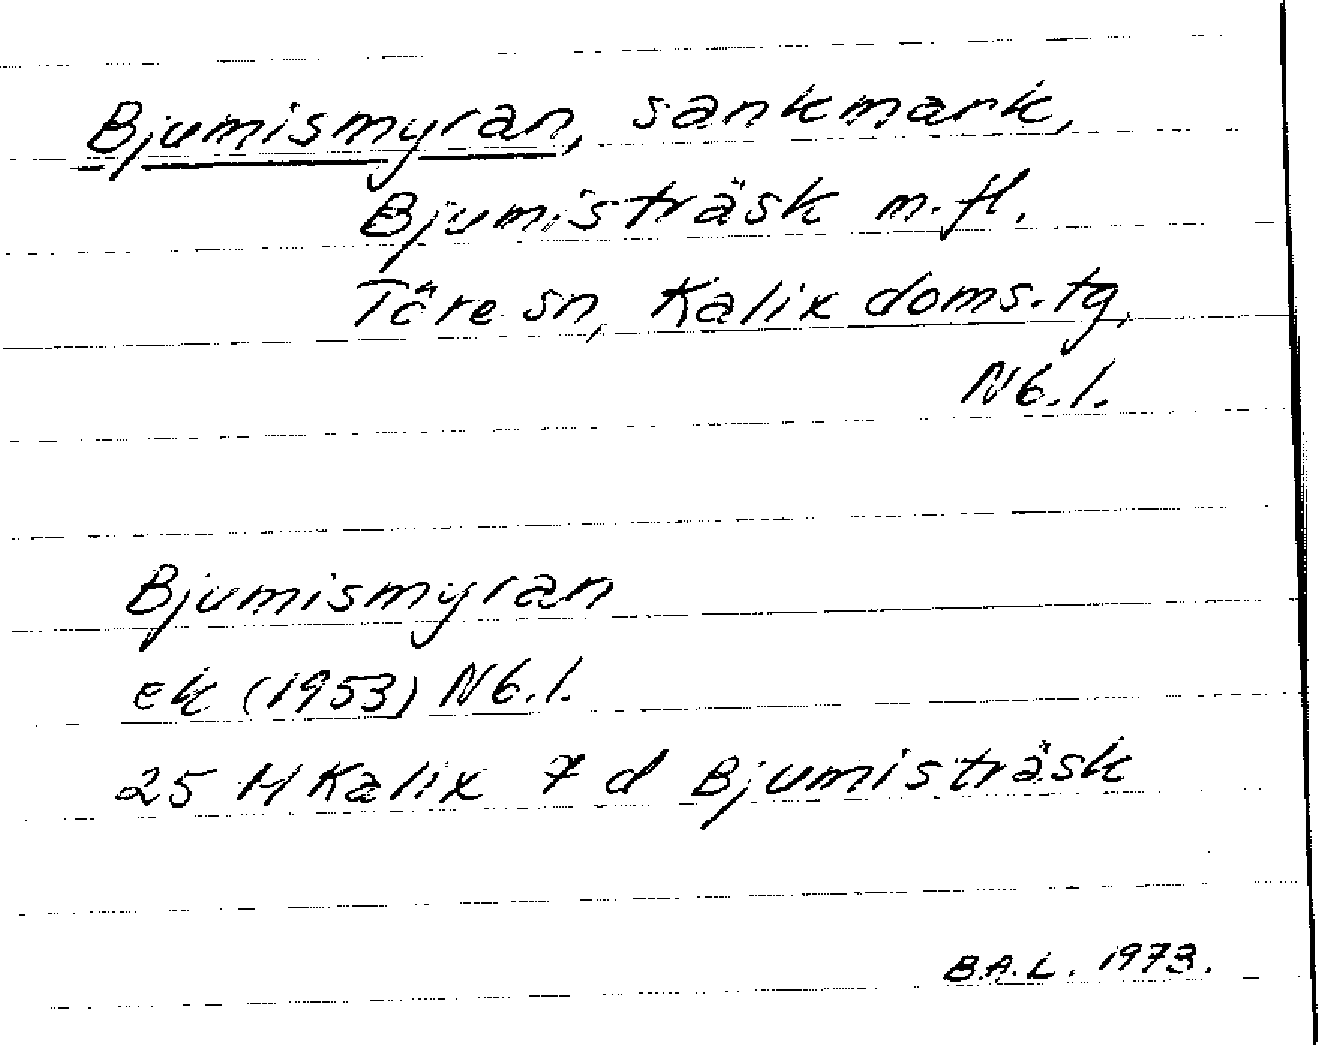 Bjumismyran, sankmark,
Bjumisträsk m.fl.
Töre sn, Kalix doms.tg,
Nb.l.
Bjumismyran
ek (1953) Nb.l.
25 M Kalix 7 d Bjumisträsk
B.A.L. 1973.